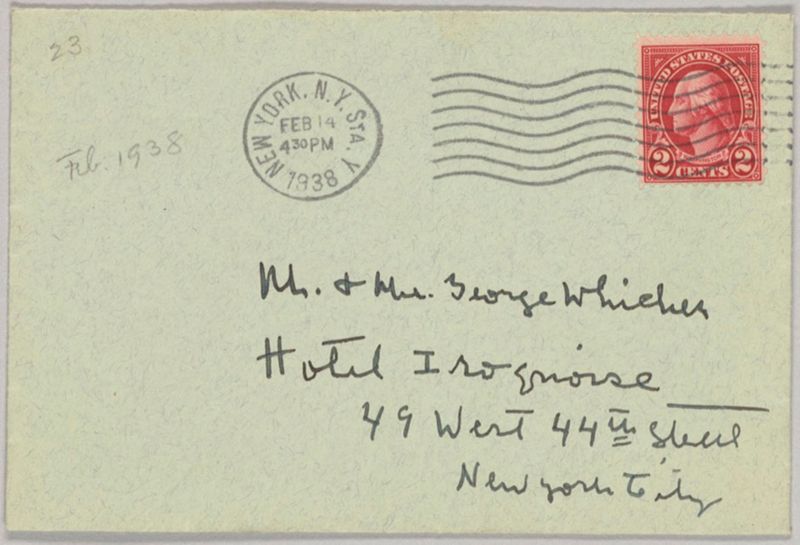 23
Feb. 1938
NEW YORK, N.Y. STA. Y
FEB 14
4 30 PM
1938
UNITED STATES POSTAGE
WASHINGTON
2 CENTS 2
Mr. & Mrs. George Whicher
Hotel Iroquoise
49 West 44th Street
New York City